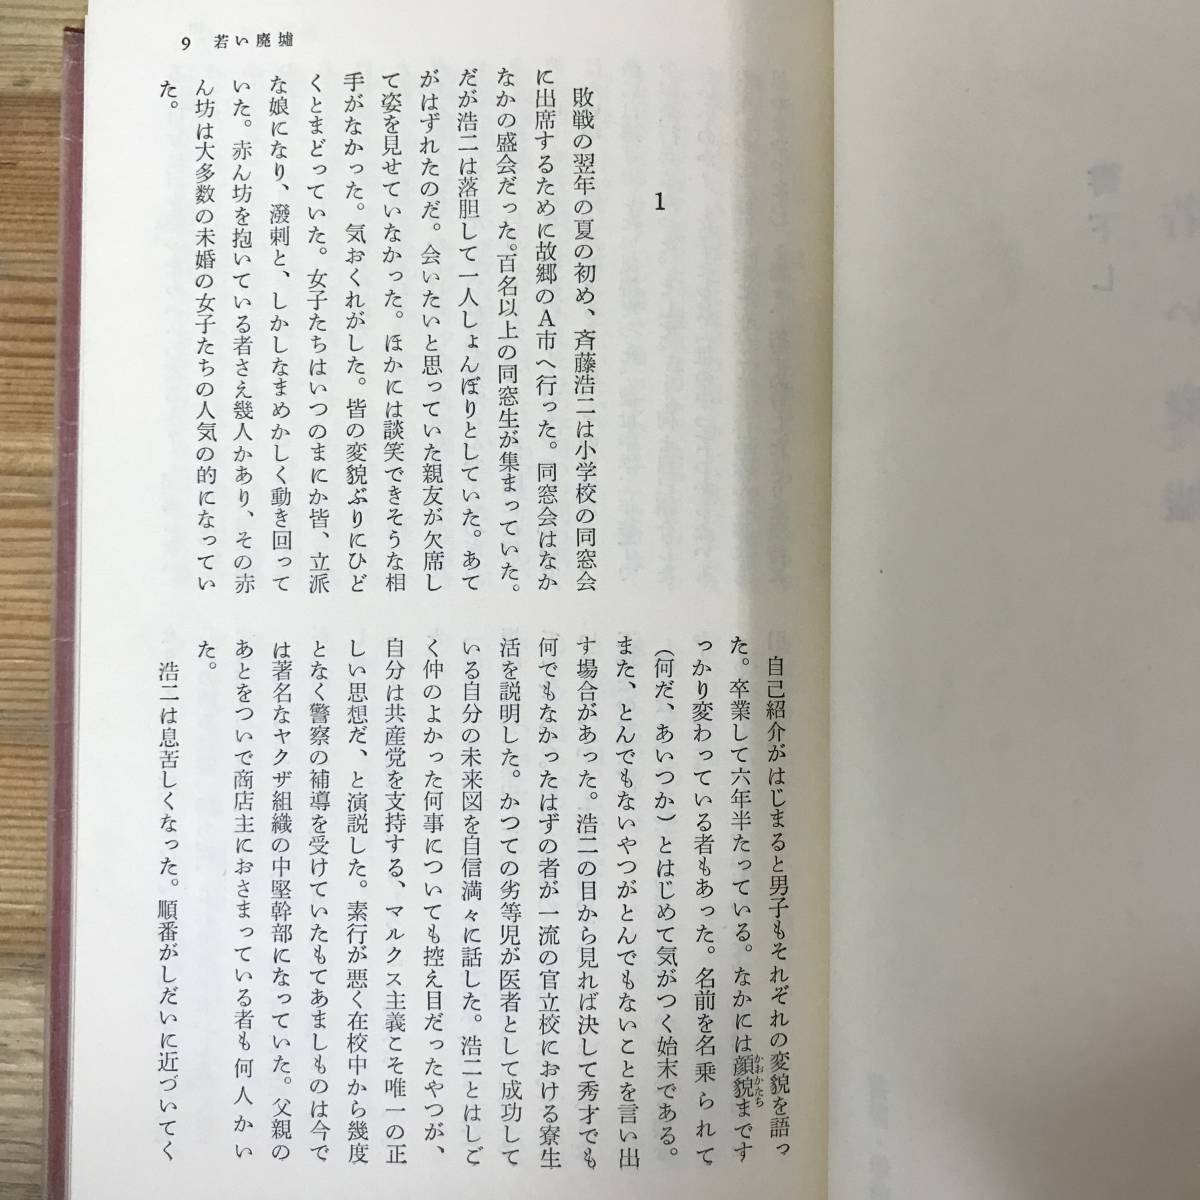 9 若い廃墟
1
敗戦の翌年の夏の初め、斉藤浩二は小学校の同窓会
に出席するために故郷のA市へ行った。同窓会はなか
なかの盛会だった。百名以上の同窓生が集まっていた。
だが浩二は落胆して一人しょんぼりとしていた。あて
がはずれたのだ。会いたいと思っていた親友が欠席し
て姿を見せていなかった。ほかには談笑できそうな相
手がなかった。気おくれがした。皆の変貌ぶりにひど
くとまどっていた。女子たちはいつのまにか皆、立派
な娘になり、潑剌と、しかしなまめかしく動き回って
いた。赤ん坊を抱いている者さえ幾人かあり、その赤
ん坊は大多数の未婚の女子たちの人気の的になってい
た。
自己紹介がはじまると男子もそれぞれの変貌を語っ
た。卒業して六年半たっている。なかには顔貌まです
かおかたち
っかり変わっている者もあった。名前を名乗られて
（何だ、あいつか）とはじめて気がつく始末である。
また、とんでもないやつがとんでもないことを言い出
す場合があった。浩二の目から見れば決して秀才でも
何でもなかったはずの者が一流の官立校における寮生
活を説明した。かつての劣等児が医者として成功して
いる自分の未来図を自信満々に話した。浩二とはしご
く仲のよかった何事についても控え目だったやつが、
自分は共産党を支持する、マルクス主義こそ唯一の正
しい思想だ、と演説した。素行が悪く在校中から幾度
となく警察の補導を受けていたもてあましものは今で
は著名なヤクザ組織の中堅幹部になっていた。父親の
あとをついで商店主におさまっている者も何人かい
た。
浩二は息苦しくなった。順番がしだいに近づいてく